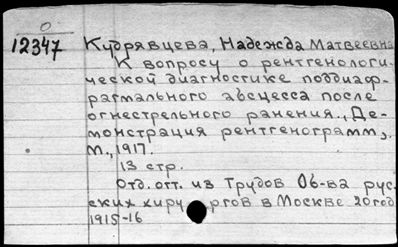 0
12347 Кудрявцева, Надежда Матвеевна
К вопросу о рентгенологи-
ческой диагностике поддиаф-
рагмального абсцесса после
огнестрельного ранения., Де-
монстрация рентгенограмм,
М., 1917.
13 стр.
Отд. отт. из Трудов Об-ва рус-
ских хирургов в Москве 20 год
1915-16